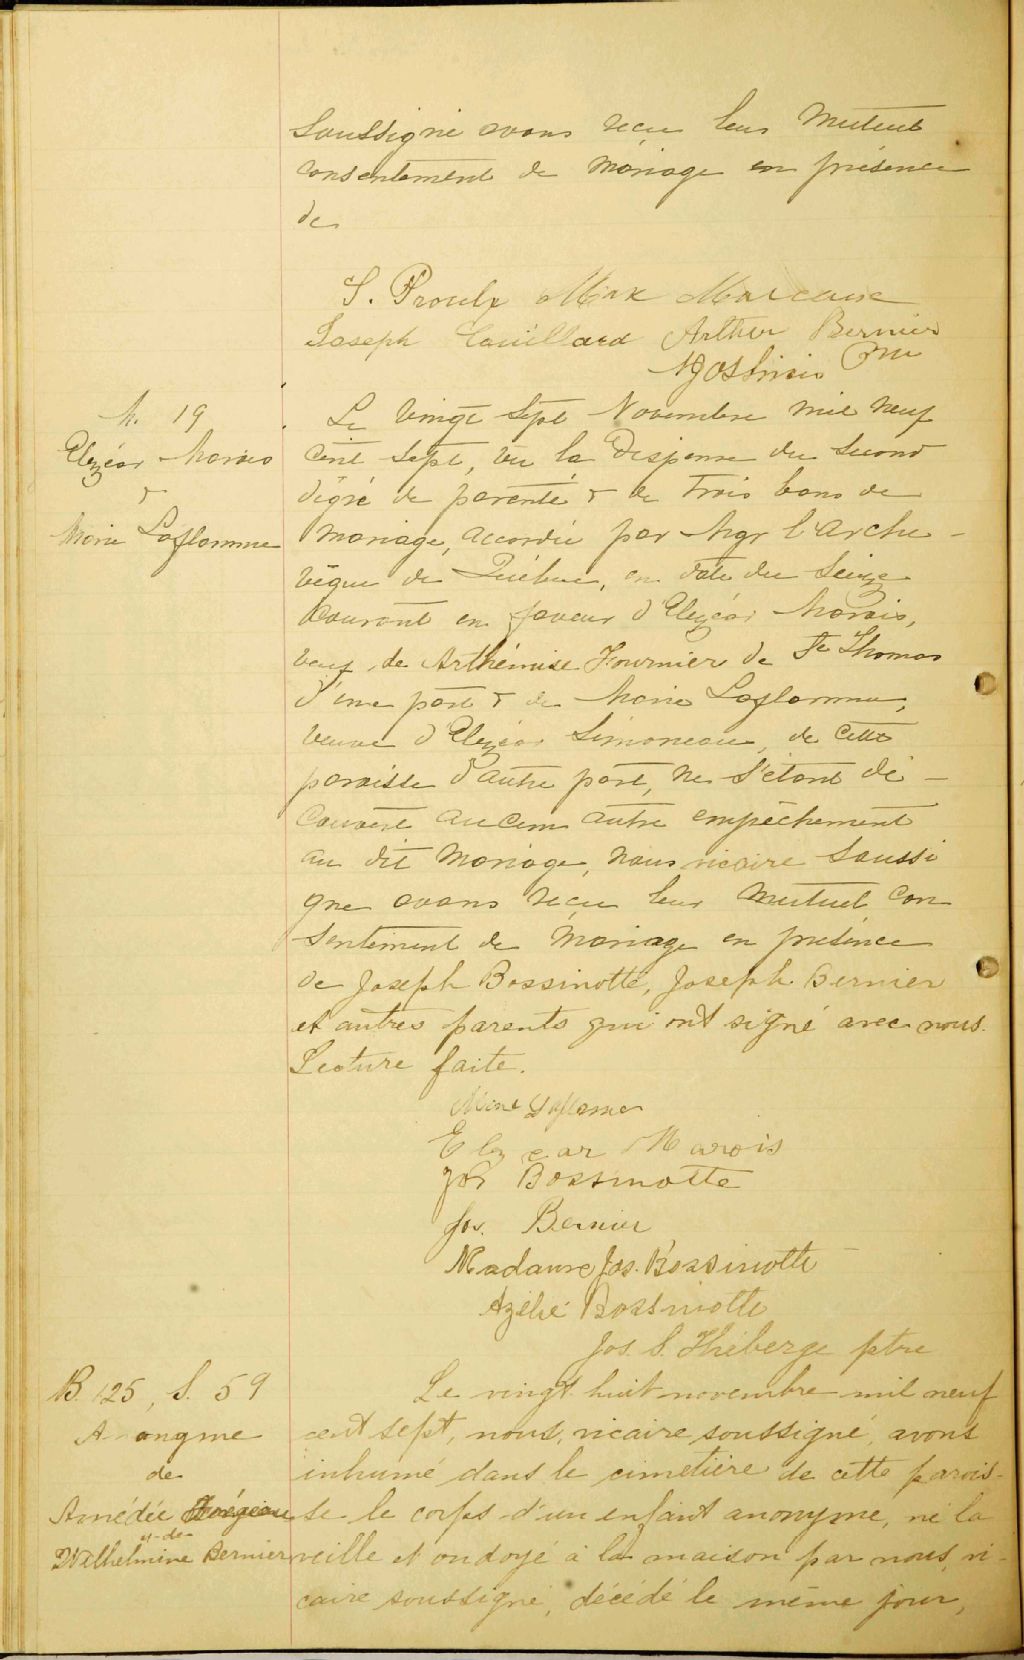 soussigné avons reçu leur mutuel
consentement de mariage en présence
de
S. Proulx Max Marceaux
Joseph Couillard Arthur Bernier
Ptre
M. 19
Elzéar Marois
&
Marie Laflamme
Le vingt sept Novembre mil neuf
cent sept, vu la dispense du second
dégré de parenté & de trois bans de
mariage, accordée par Mgr l'Arche-
vêque de Québec, en date du seize
courant en faveur d'Elzéar Marois,
veuf de Arthémise Fournier de St Thomas
d'une part & de Marie Laflamme,
veuve d'Elzéar Simoneau, de cette
paroisse d'autre part, ne s'étant dé-
couvert aucun autre empêchement
au dit mariage, nous vicaire soussi
gné avons reçu leur mutuel con
sentement de mariage en présence
de Joseph Bossinotte, Joseph Bernier
et autres parents qui ont signé avec nous.
Lecture faite.
Marie Laflamme
Elzear Marois
Jos Bossinotte
Jos. Bernier
Madame Jos. Bossinotte
Azélie Bossinotte
Jos. S. Théberge ptre
B. 125, S. 59
Anonyme
de
Amédée
et de
Wilhelmine Bernier
Le vingt huit novembre mil neuf
cent sept, nous, vicaire soussigné, avons
inhumé dans le cimetière de cette parois-
se le corps d'un enfant anonyme, né la
veille et ondoyé à la maison par nous, vi-
caire soussigné, décédé le même jour,